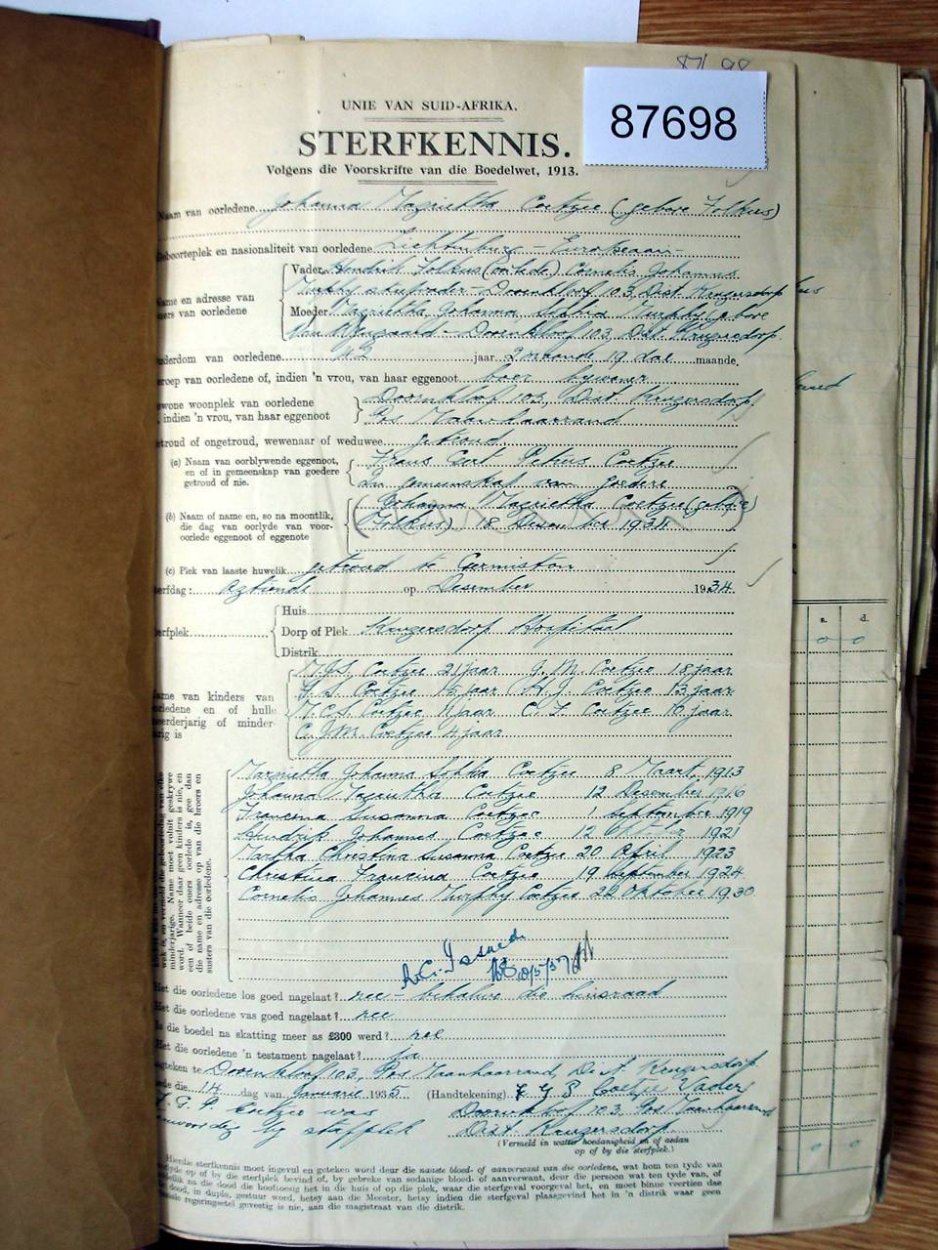 87698
UNIE VAN SUID-AFRIKA.
STERFKENNIS.
Volgens die Voorskrifte van die Boedelwet, 1913.
Naam van oorledene Johanna Coetzee (gebore
Geboorteplek en nasionaliteit van oorledene Lichtenburg - Europeaan -
Vader Hendrik (oorlede) Cornelis Johannes
Name en adresse van
ouers van oorledene
Murphy stiefvader - Doornkloof 103, Dist. Krugersdorp
Moeder Johanna Murphy gebore
Doornkloof 103 Dist Krugersdorp
Ouderdom van oorledene 42 jaar 9 maande 19 dae maande.
Beroep van oorledene of, indien 'n vrou, van haar eggenoot boer bywoner
Gewone woonplek van oorledene
of, indien 'n vrou, van haar eggenoot
Doornkloof 103, Dist. Krugersdorp
Pos Maanhaarrand
Getroud of ongetroud, wewenaar of weduwee getroud
(a) Naam van oorblywende eggenoot,
en of in gemeenskap van goedere
getroud of nie.
Frans Petrus Coetzee
In gemeenskap van goedere
(b) Naam of name en, so na moontlik,
die dag van oorlyde van voor-
oorlede eggenoot of eggenote
Johanna Coetzee (gebore
18 Desember 1934
(c) Plek van laaste huwelik getroud te Germiston
Sterfdag: Agtiende op Desember 1934
Sterfplek
Huis
Dorp of Plek Krugersdorp Hospitaal
Distrik
Name van kinders van
oorledene en of hulle
meerderjarig of minder-
jarig is
M.J.S. Coetzee 21 jaar J.M. Coetzee 18 jaar
F.S. Coetzee 15 jaar H.J. Coetzee 13 jaar
M.C.S. Coetzee 11 jaar C.F. Coetzee 10 jaar
C.J.M. Coetzee 4 jaar
Johanna Coetzee 8 Maart, 1913
Johanna Coetzee 12 Desember 1916
Francina Susanna Coetzee 1 September 1919
Hendrik Johannes Coetzee 12 Oktober 1921
Martha Christina Susanna Coetzee 20 April 1923
Christina Francina Coetzee 19 September 1924
Cornelis Johannes Murphy Coetzee 22 Oktober 1930
minderjarige. Name moet voluit geskrywe
word. Wanneer daar geen kinders is nie, en
een of beide ouers oorlede is, gee dan
die name en adresse op van die broers en
susters van die oorledene.
Het die oorledene los goed nagelaat? nee - behalwe die huisraad
Het die oorledene vas goed nagelaat? nee
Is die boedel na skatting meer as £300 werd? nee
Het die oorledene 'n testament nagelaat? Ja
Geteken te Doornkloof 103, Pos Maanhaarrand, Dist. Krugersdorp
hede die 14 dag van Januarie 1935 (Handtekening) Coetzee Vader
Coetzee was Doornkloof 103 Pos Maanhaarrand
teenwoordig by sterfplek Dist. Krugersdorp
(Vermeld in watter hoedanigheid en of aedan
op of by die sterfplek.)
Hierdie sterfkennis moet ingevul en geteken word deur die naaste bloed- of aanverwant van die oorledene, wat hom ten tyde van
oorlyde op of by die sterfplek bevind of, by gebreke van sodanige bloed- of aanverwant, deur die persoon wat ten tyde van, of
dadelik na die dood die hooftoesig het in die huis of op die plek, waar die sterfgeval voorgeval het, en moet binne veertien dae
dood, in duplo, gestuur word, hetsy aan die Meester, hetsy indien die sterfgeval plaasgevind het in 'n distrik waar geen
regeringsetel gevestig is nie, aan die magistraat van die distrik.
s. d.